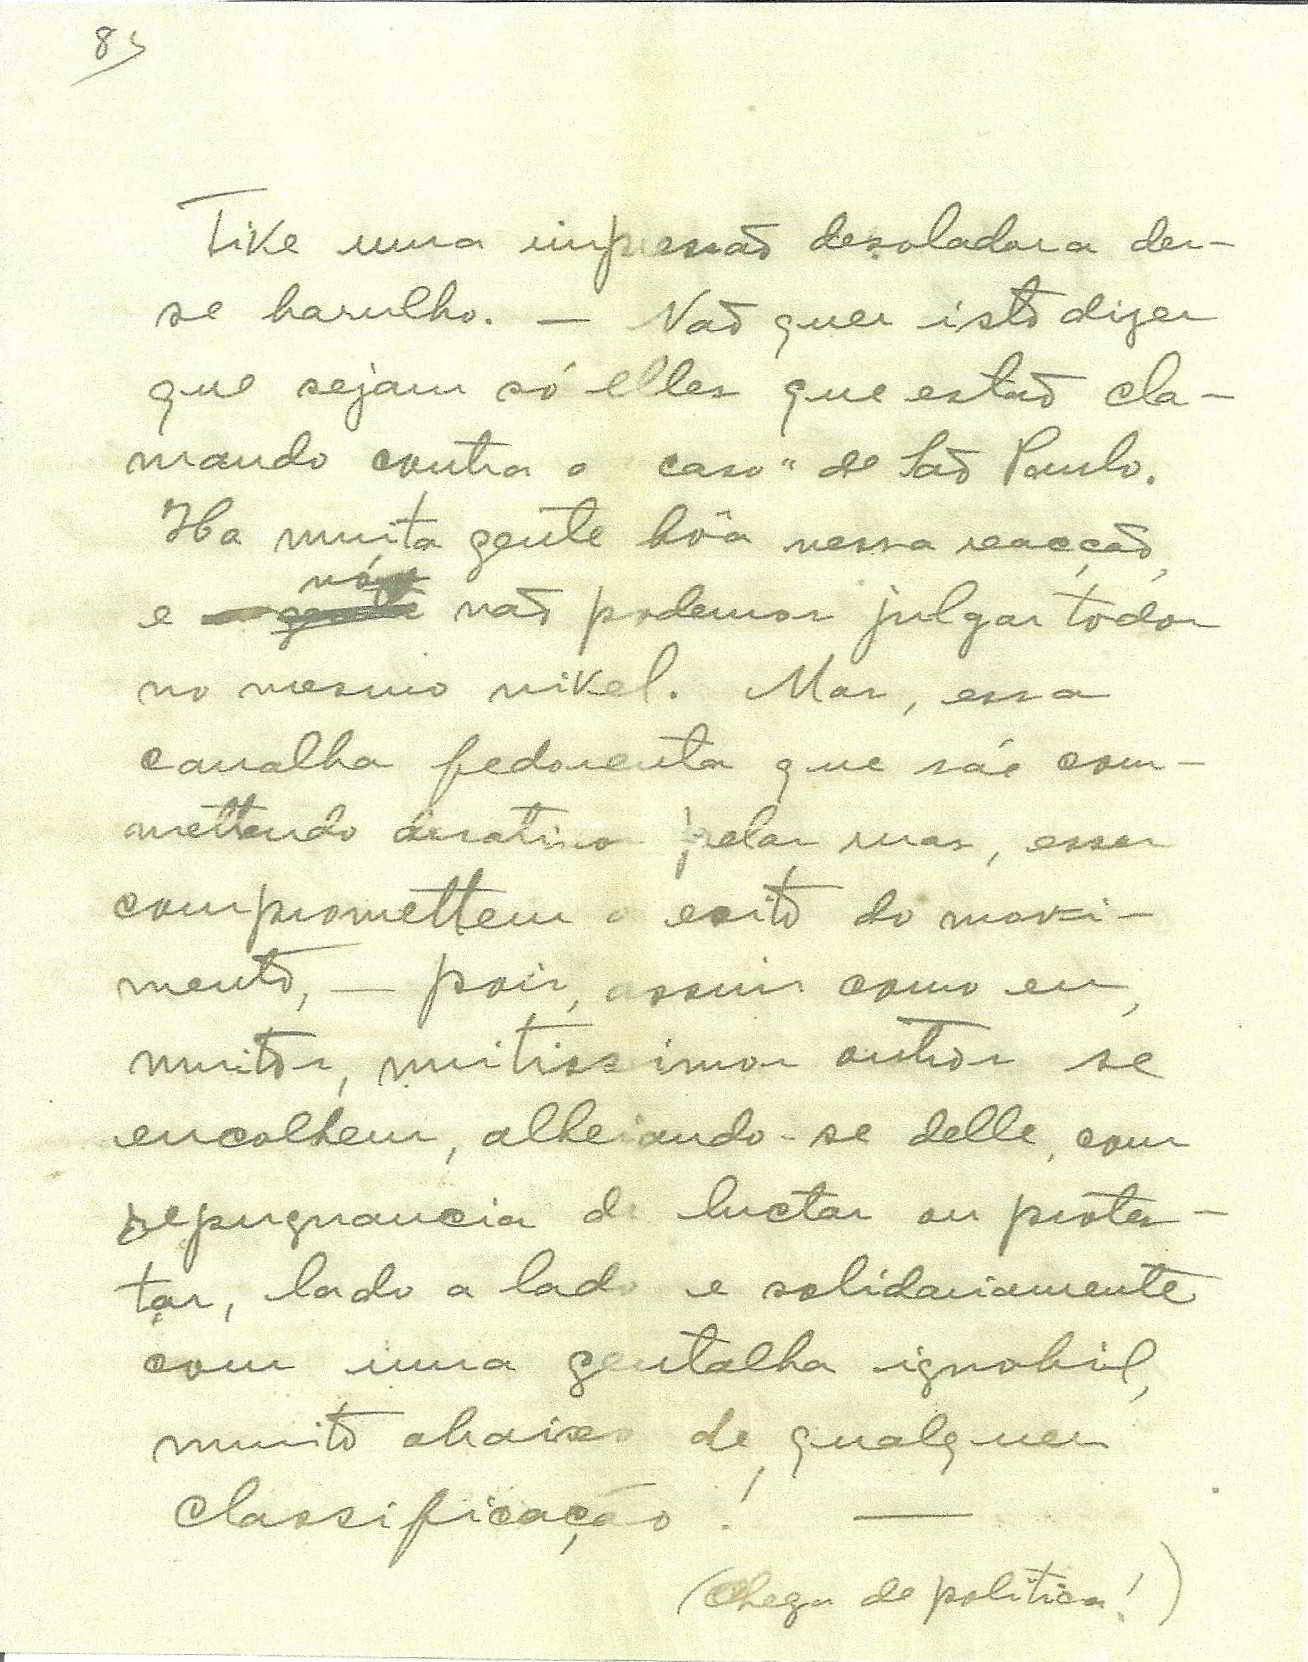 8s
Tive uma impressão desoladora des-
se barulho. — Não quer isto dizer
que sejam só elles que estão cla-
mando contra o caso" de São Paulo.
Ha muita gente bôa nessa reacção,
nós
e não podemos julgar todos
no mesmo nivel. Mas, essa
canalha fedorenta que sáe com-
mettendo desatinos pelas ruas, esses
compromettem o exito do movi-
mento, — pois, assim como eu,
muitos, muitissimos outros se
encolhem, alheiando-se delle, com
repugnancia de luctar ou protes-
tar, lado a lado e solidariamente
com uma gentalha ignobil,
muito abaixo de qualquer
classificação! —
(Chega de politica!)